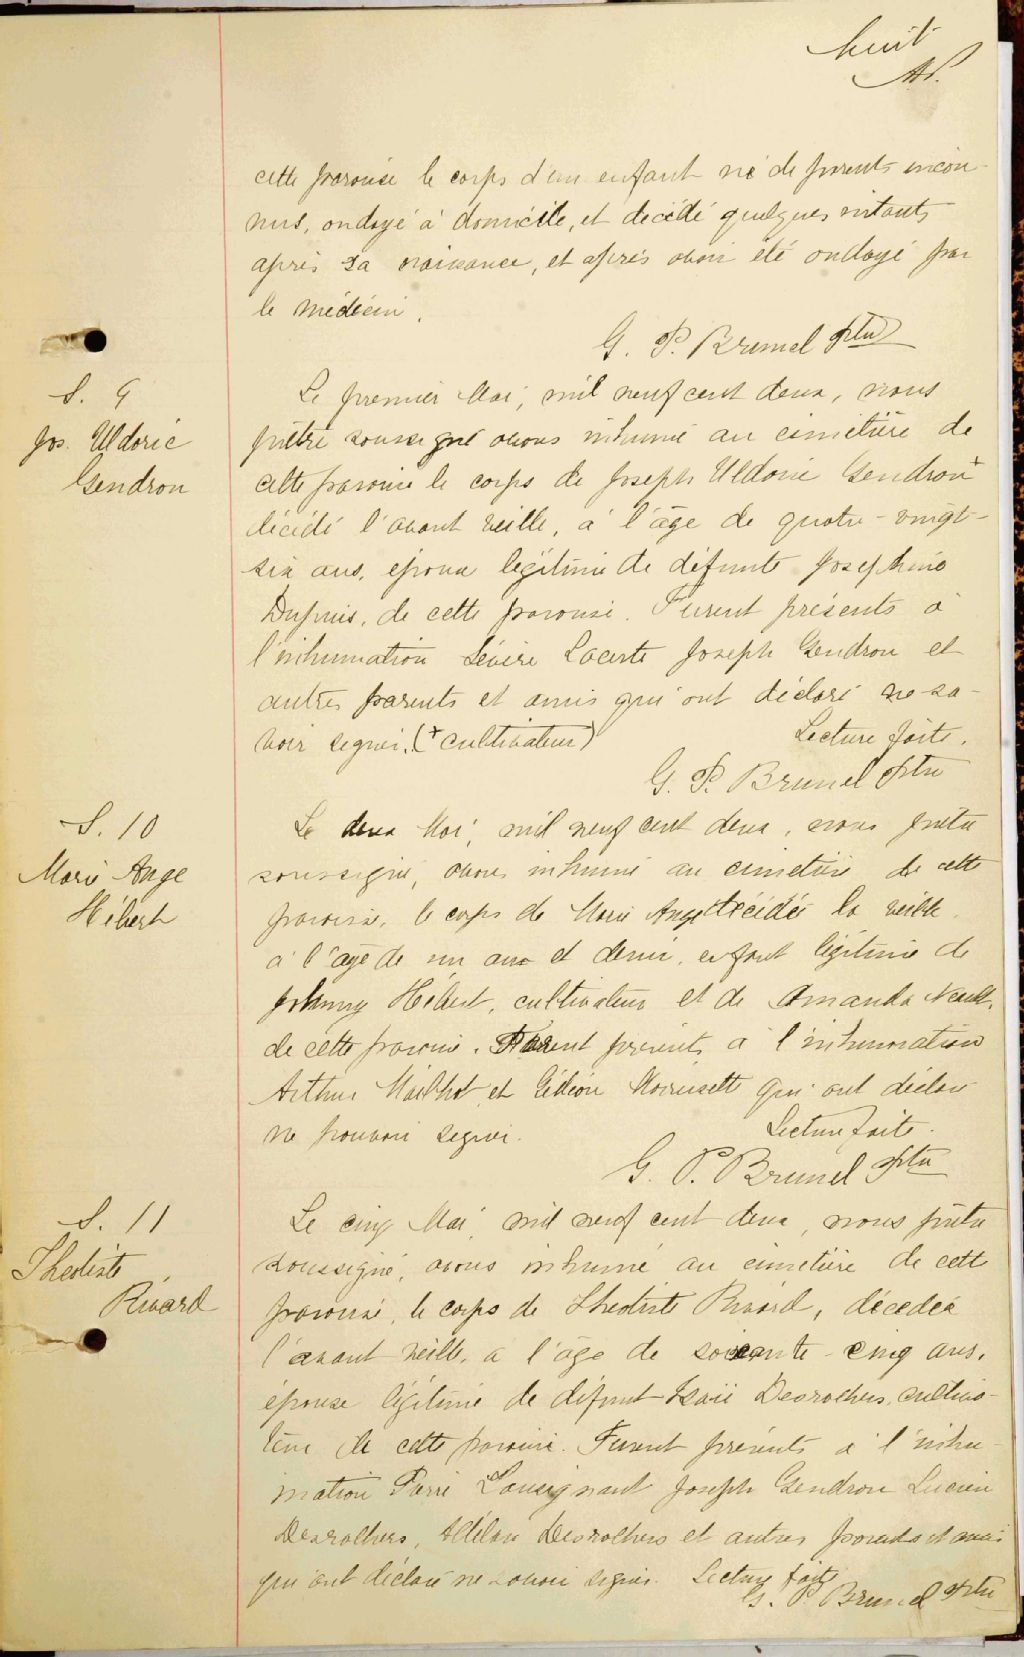 huit
cette paroisse le corps d'un enfant né de parents incon-
nus, ondoyé à domicile, et décédé quelques instants
après sa naissance, et après avoir été ondoyé par
le médecin.
G. P. Brunel Ptre
S. 9
Jos. Uldoric
Gendron
Le premier Mai, mil neuf cent deux, nous
prêtre soussigné avons inhumé au cimetière de
cette paroisse le corps de Joseph Uldoric Gendron +
décédé l'avant veille, à l'âge de quatre-vingt-
six ans, époux légitime de défunte Josephine
Dupuis, de cette paroisse. Furent présents à
l'inhumation Sévère Lacerte Joseph Gendron et
autres parents et amis qui ont déclaré ne sa-
voir signer. (+ cultivateur) Lecture faite.
G. P. Brunel Ptre
S. 10
Marie Ange
Hébert
Le deux Mai, mil neuf cent deux, nous prêtre
soussigné, avons inhumé au cimetière de cette
paroisse, le corps de Marie Ange décédée la veille,
à l'âge de un an et demi, enfant légitime de
Johnny Hébert, cultivateur et de Amanda
de cette paroisse. Furent présents à l'inhumation
Arthur Mailhot et Gédéon Morissette qui ont déclaré
ne pouvoir signer. Lecture faite.
G. P. Brunel Ptre
S. 11
Theotiste
Rivard
Le cinq Mai, mil neuf cent deux, nous prêtre
soussigné, avons inhumé au cimetière de cette
paroisse, le corps de Theotiste Rivard, décédée
l'avant veille, a l'âge de soixante-cinq ans,
épouse légitime de défunt Isaïe Desrochers, cultiva-
teur de cette paroisse. Furent présents à l'inhu-
mation Pierre Lousignant Joseph Gendron Lucien
Desrochers, Desrochers et autres parents et amis
qui ont déclaré ne savoir signer. Lecture faite
G. P. Brunel Ptre